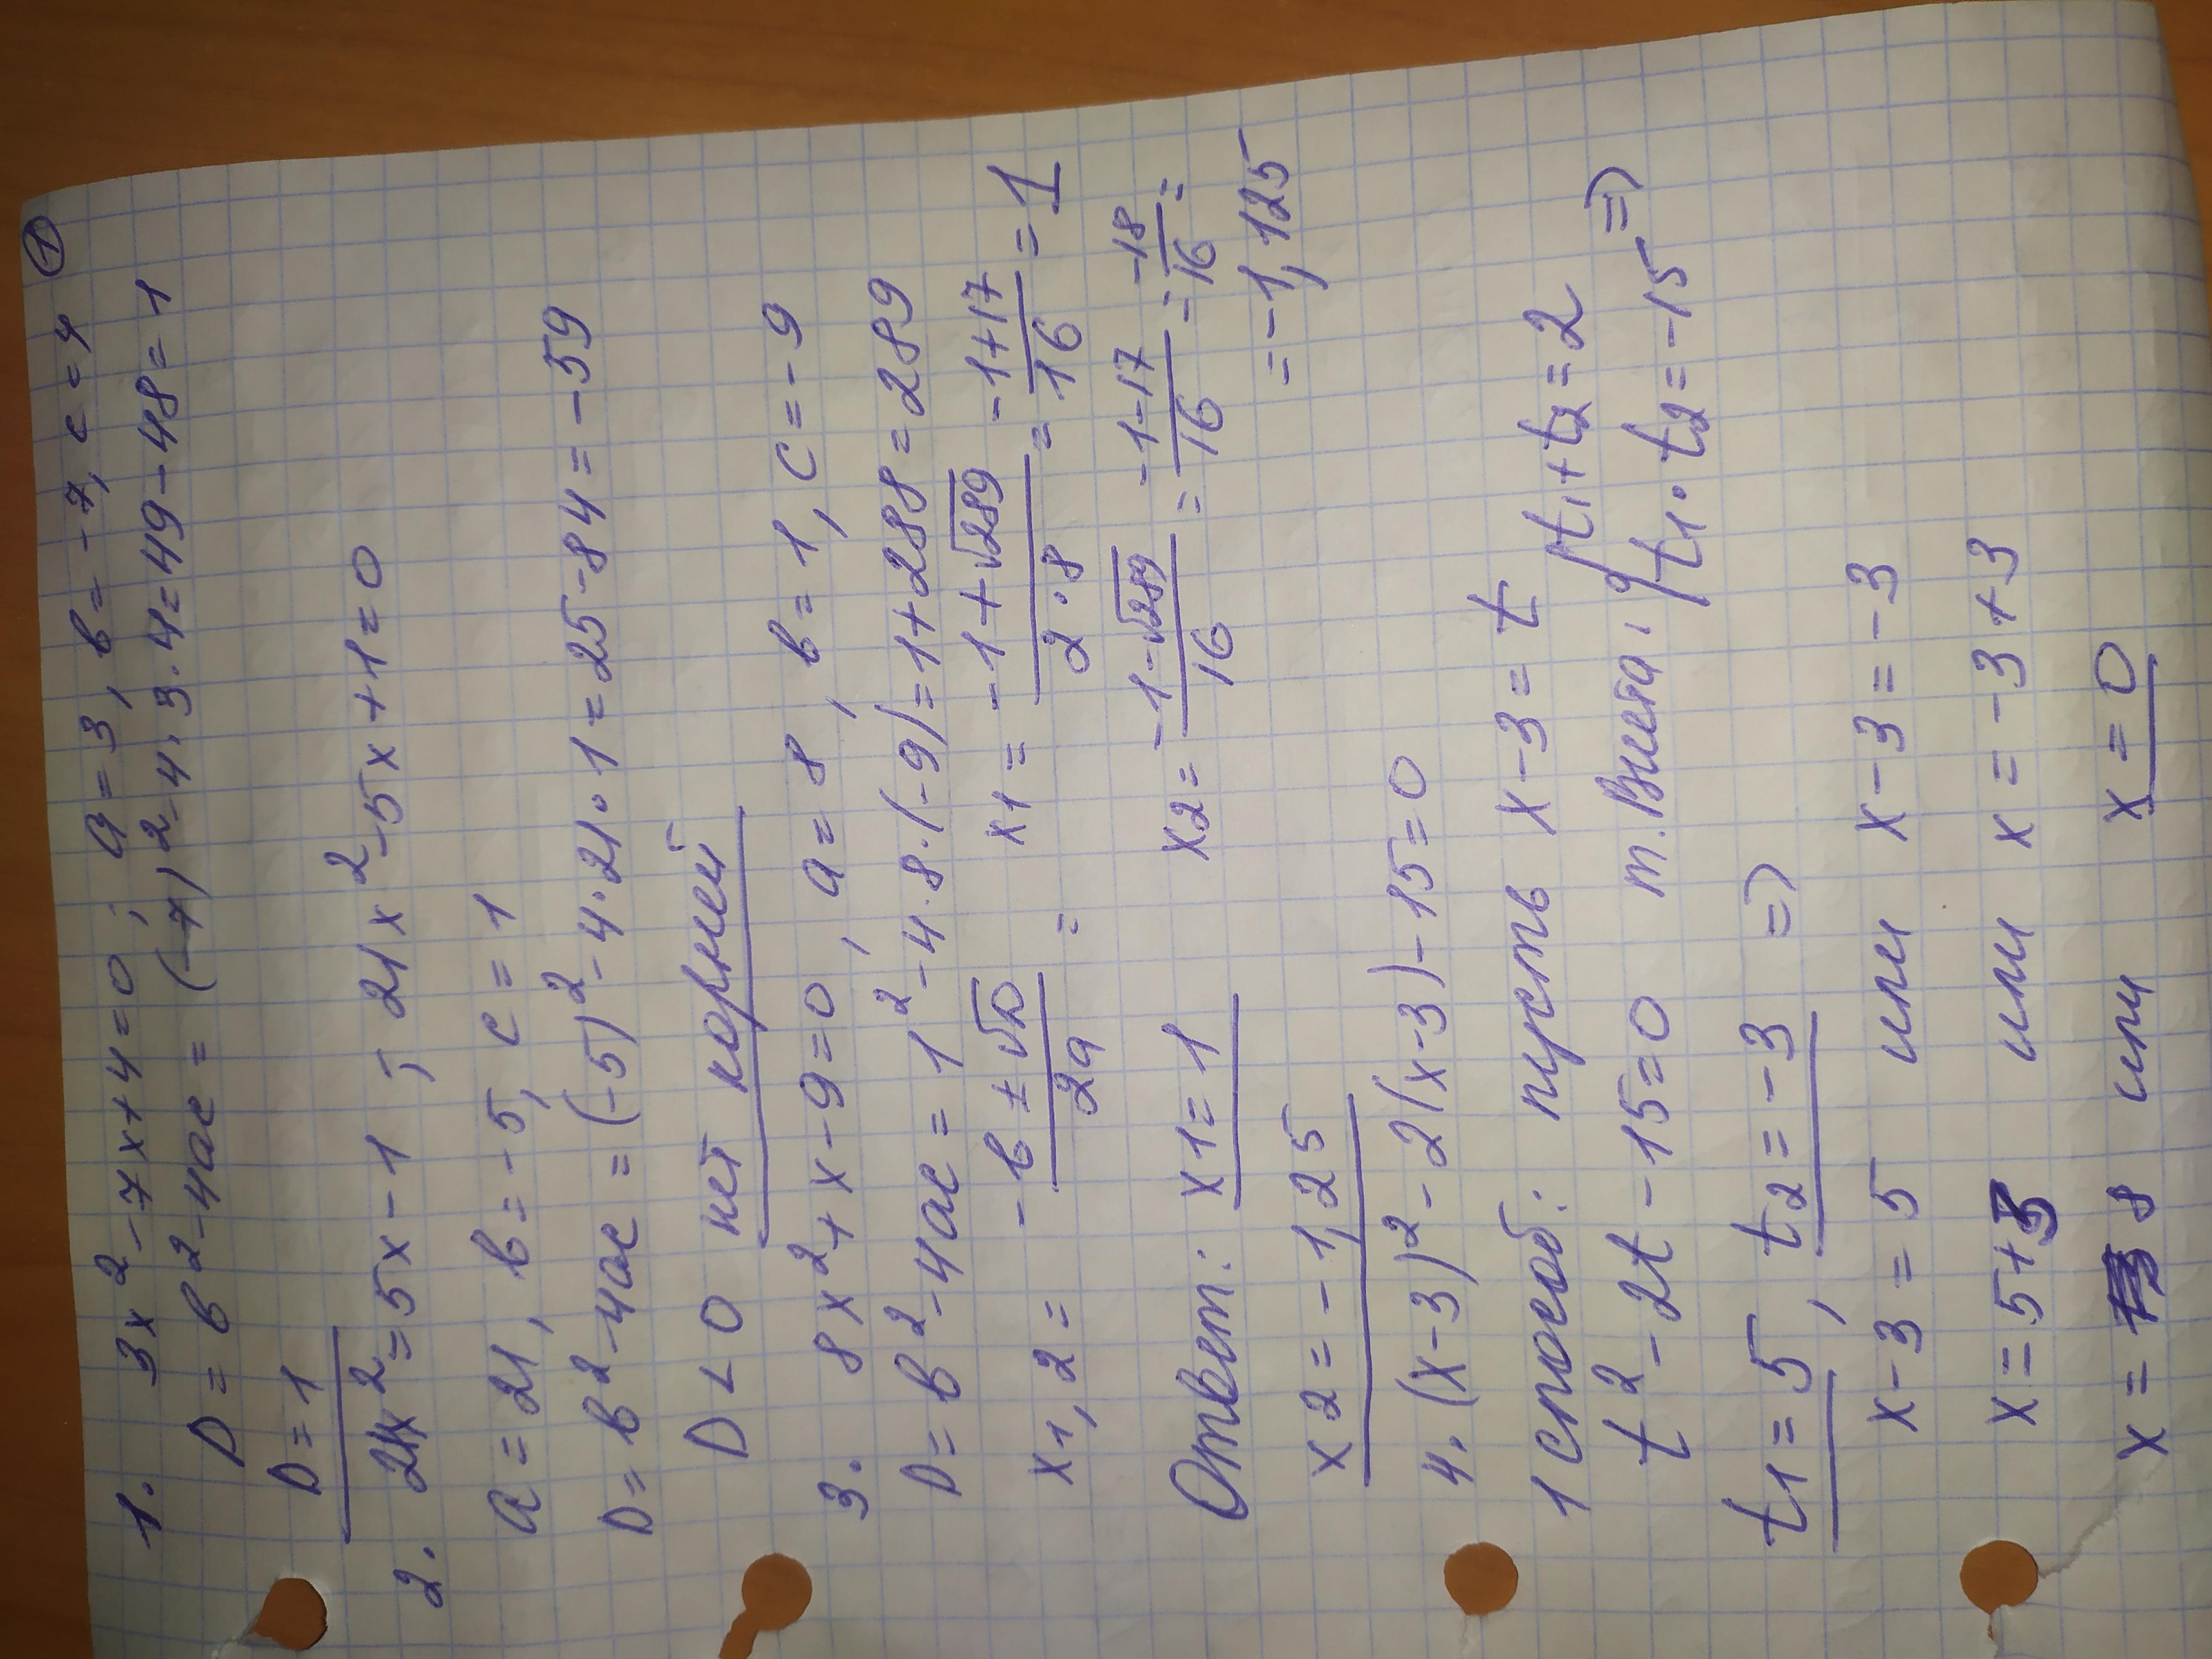 ①
1. 3x²-7x+4=0; a=3, в=-7, c=4
D=в²-4ac=(-7)²-4·3·4=49-48=1
D=1
2. 21x²=5x-1; 21x²-5x+1=0
a=21, в=-5, c=1
D=в²-4ac=(-5)²-4·21·1=25-84=-59
D<0 нет корней
3. 8x²+x-9=0, a=8, в=1, c=-9
D=в²-4ac=1²-4·8·(-9)=1+288=289
x1,2=(-в±√D)/2a = x1=(-1+√289)/(2·8)=(-1+17)/16=1
Ответ: x1=1 x2=(-1-√289)/16=(-1-17)/16=-18/16=
x2=-1,25 =-1,125
4. (x-3)²-2(x-3)-15=0
1 способ: пусть x-3=t
t²-2t-15=0 т.Виета: {t1+t2=2
t1·t2=-15 =>
t1=5, t2=-3 =>
x-3=5 или x-3=-3
x=5+3 или x=-3+3
x=8 или x=0